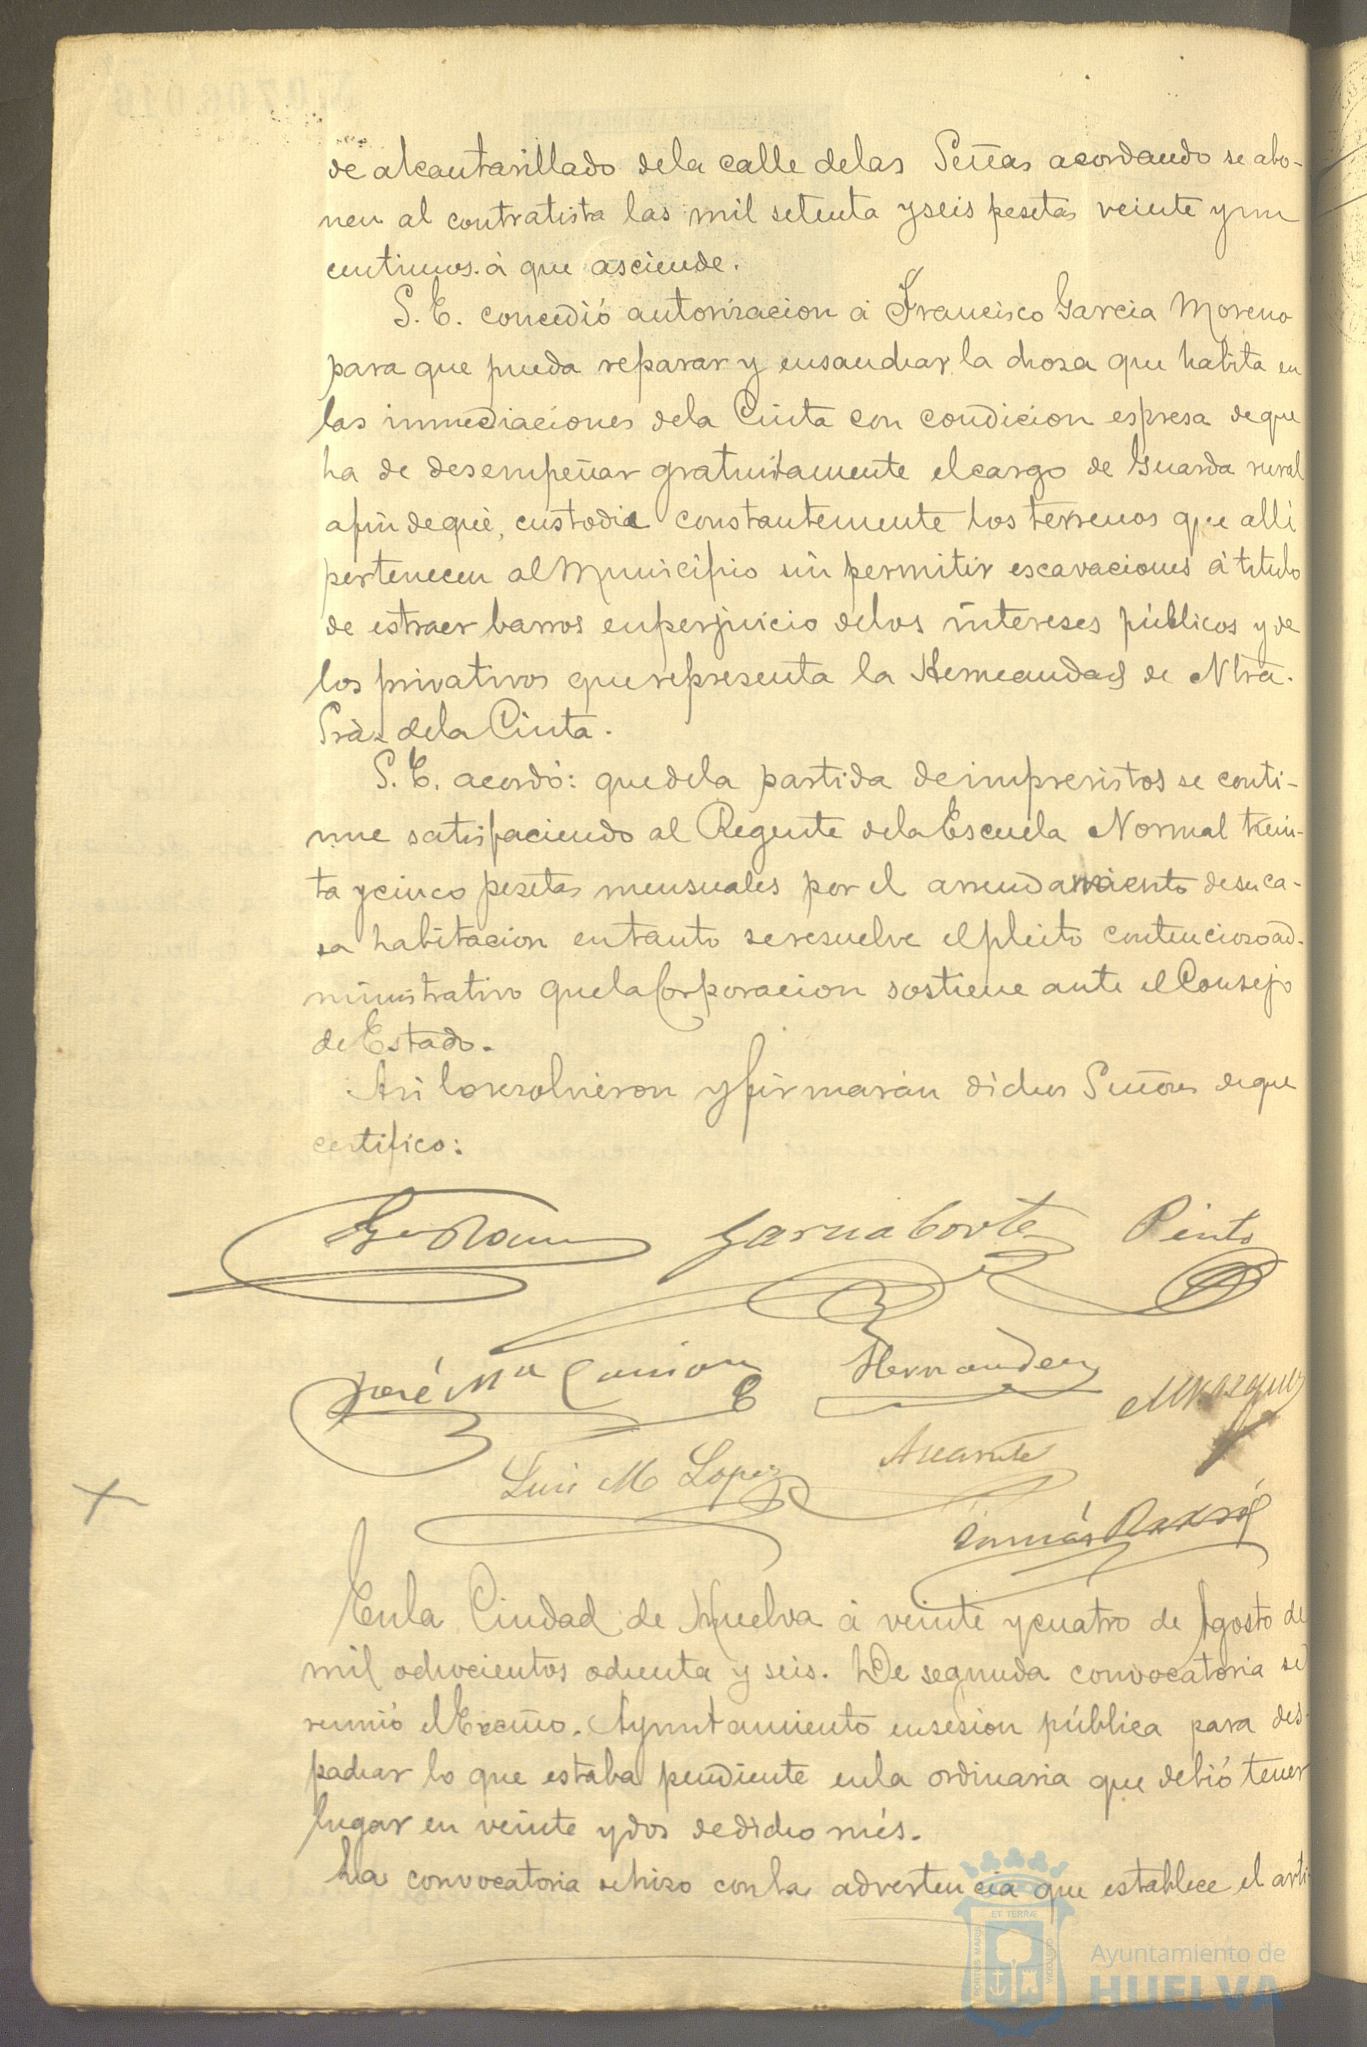 de alcantarillado dela calle delas Peñas acordando se abo-
nen al contratista las mil setenta y seis pesetas veinte y un
centimos. á que asciende.
S. E. concedió autorizacion á Francisco Garcia Moreno
para que pueda reparar y ensanchar la choza que habita en
las inmediaciones dela Cinta con condicion espresa de que
ha de desempeñar gratuitamente el cargo de Guarda rural
afin de que, custodie constantemente los terrenos que alli
pertenecen al Municipio sin permitir escavaciones á titulo
de estraer barros en perjuicio delos intereses públicos y de
los privativos que representa la Hermandad de Ntrā.
Srā. dela Cinta.
S. E. acordó: que dela partida de imprevistos se conti-
nue satisfaciendo al Regente dela Escuela Normal trein-
ta y cinco pesetas mensuales por el arrendamiento de su ca-
sa habitacion en tanto se resuelve el pleito contencioso ad-
ministrativo que la Corporacion sostiene ante el Consejo
de Estado.
Asi lo resolvieron y firmarán dichos Señores de que
certifico:
Garcia Cortes Pinto
José Mª Hernandez M Vazquez
Luis M Lopez
Tomás
En la Ciudad de Huelva á veinte y cuatro de Agosto de
mil ochocientos ochenta y seis. De segunda convocatoria se
reunió el Excm̄o. Ayuntamiento en sesion pública para des-
pachar lo que estaba pendiente en la ordinaria que debió tener
lugar en veinte y dos de dicho més.
La convocatoria se hizo con la advertencia que establece el arti-
PORTUS MARIS ET TERRÆ CUSTODIA
Ayuntamiento de
HUELVA